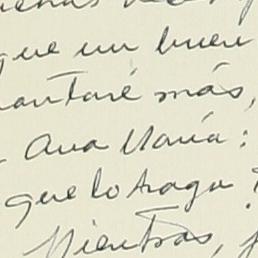 que un buen
más,
Ana María:
que lo haga
Mientras,